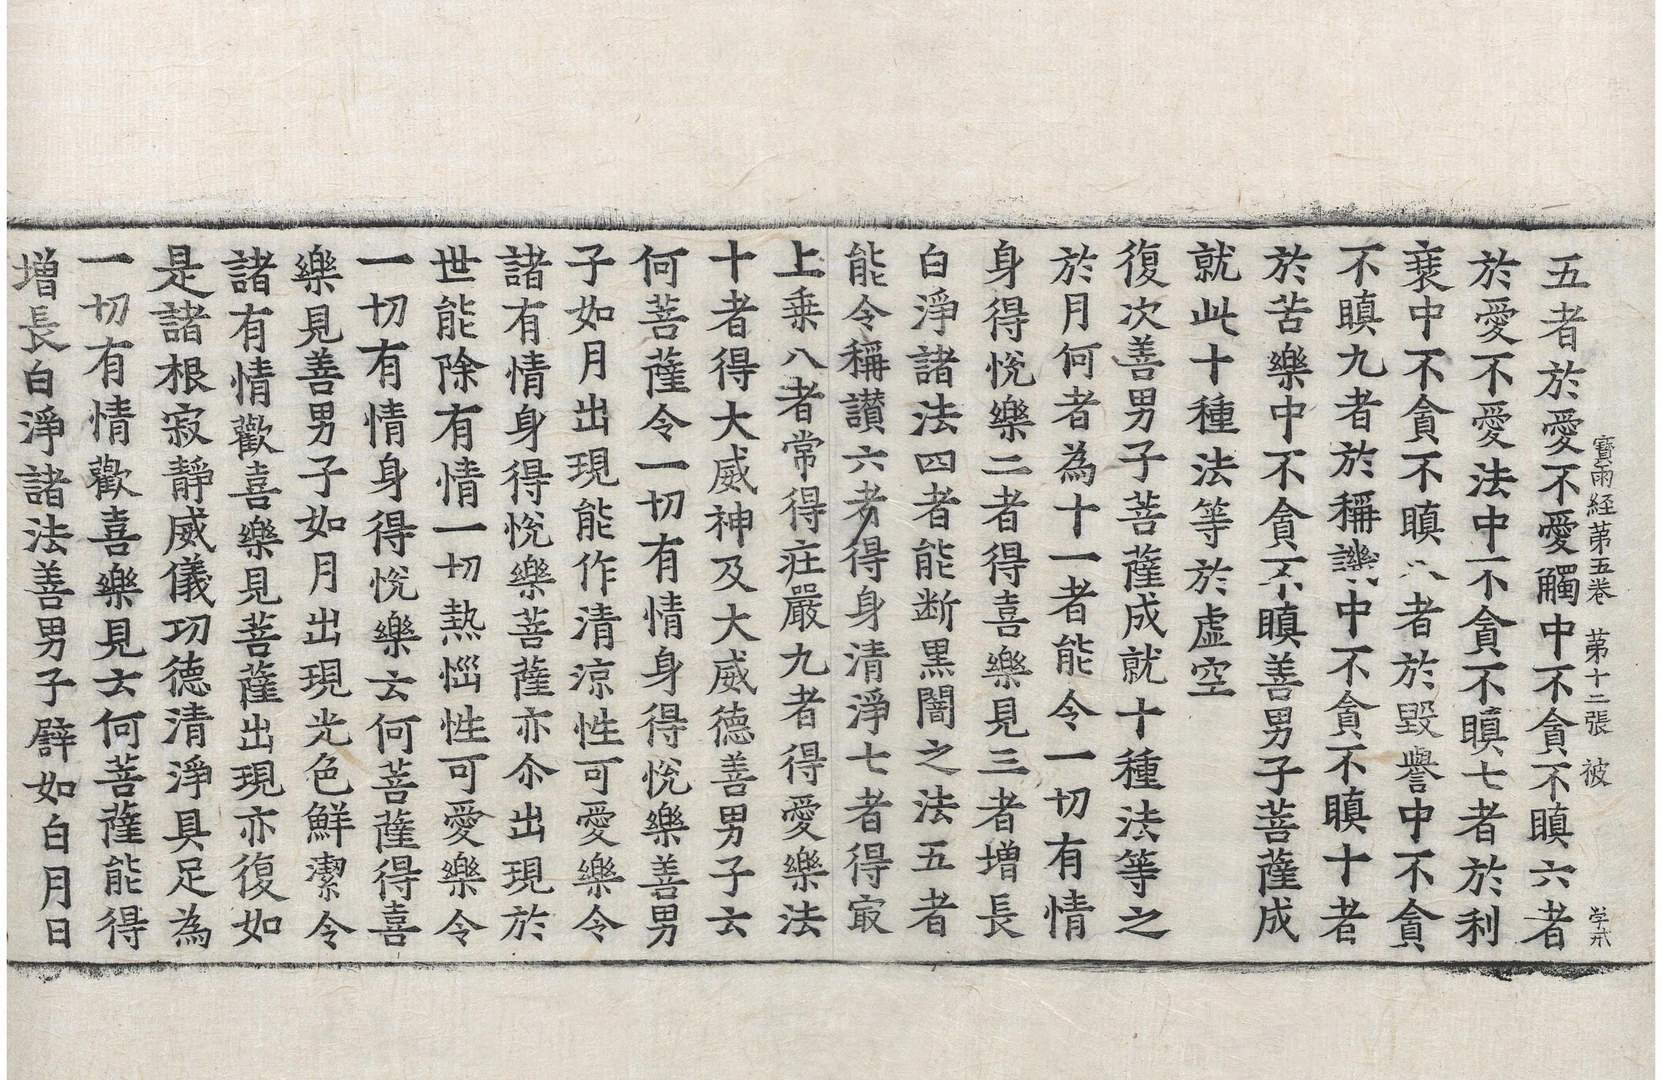 寶雨経苐五卷　苐十二張　被　学戒
五者於愛不愛觸中不貪不瞋六者
於愛不愛法中不貪不瞋七者於利
衰中不貪不瞋八者於毀譽中不貪
不瞋九者於稱譏中不貪不瞋十者
於苦樂中不貪不瞋善男子菩薩成
就此十種法等於虛空
復次善男子菩薩成就十種法等之
於月何者為十一者能令一切有情
身得悅樂二者得喜樂見三者增長
白淨諸法四者能断黒闇之法五者
能令稱讃六者得身清淨七者得㝡
上乗八者常得荘嚴九者得愛樂法
十者得大威神及大威德善男子云
何菩薩令一切有情身得悅樂善男
子如月出現能作清涼性可愛樂令
諸有情身得悅樂菩薩亦尒出現於
世能除有情一切熱惱性可愛樂令
一切有情身得悅樂云何菩薩得喜
樂見善男子如月出現光色鮮潔令
諸有情歡喜樂見菩薩出現亦復如
是諸根寂靜威儀功德清淨具足為
一切有情歡喜樂見云何菩薩能得
增長白淨諸法善男子譬如白月日